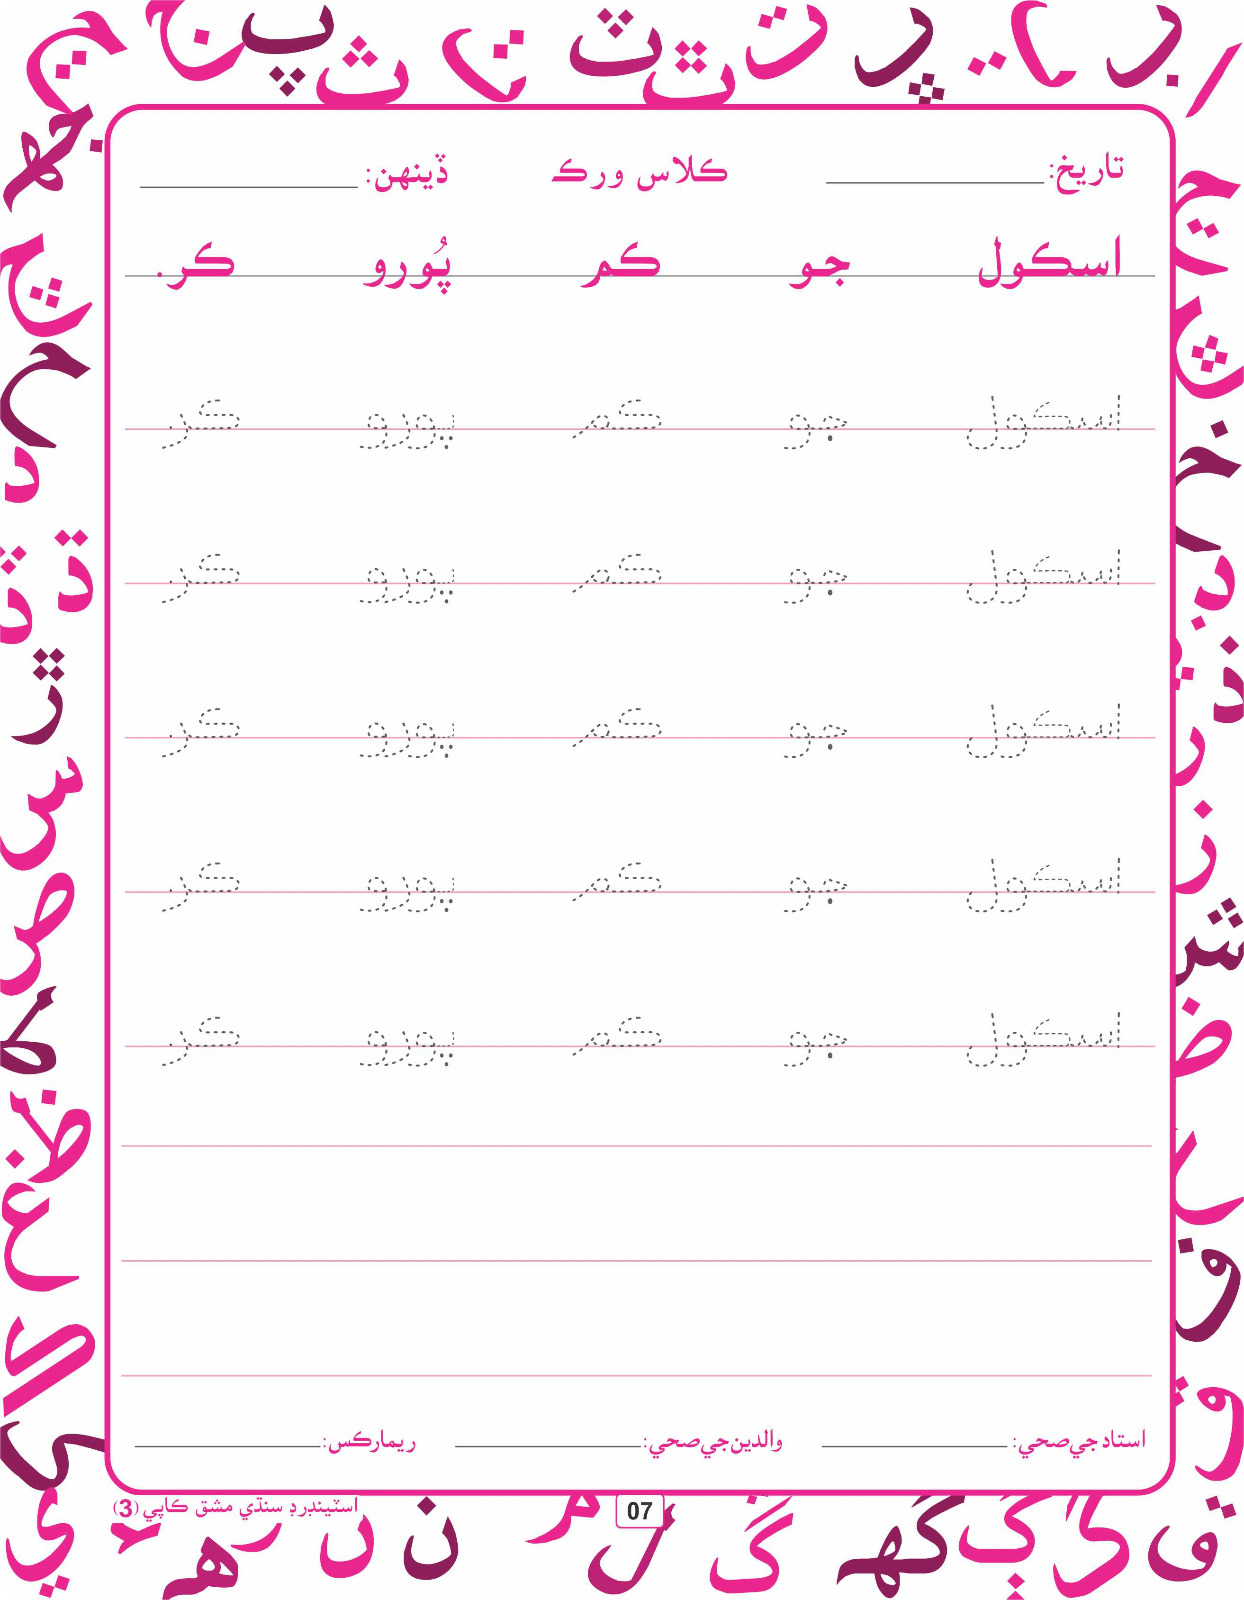 تاريخ: ڪلاس ورڪ ڏينهن:
اسڪول جو ڪم پُورو ڪر.
اسڪول جو ڪم پورو ڪر
اسڪول جو ڪم پورو ڪر
اسڪول جو ڪم پورو ڪر
اسڪول جو ڪم پورو ڪر
اسڪول جو ڪم پورو ڪر
استاد جي صحي: والدين جي صحي: ريمارڪس:
07
اسٽينڊرڊ سنڌي مشق ڪاپي (3)